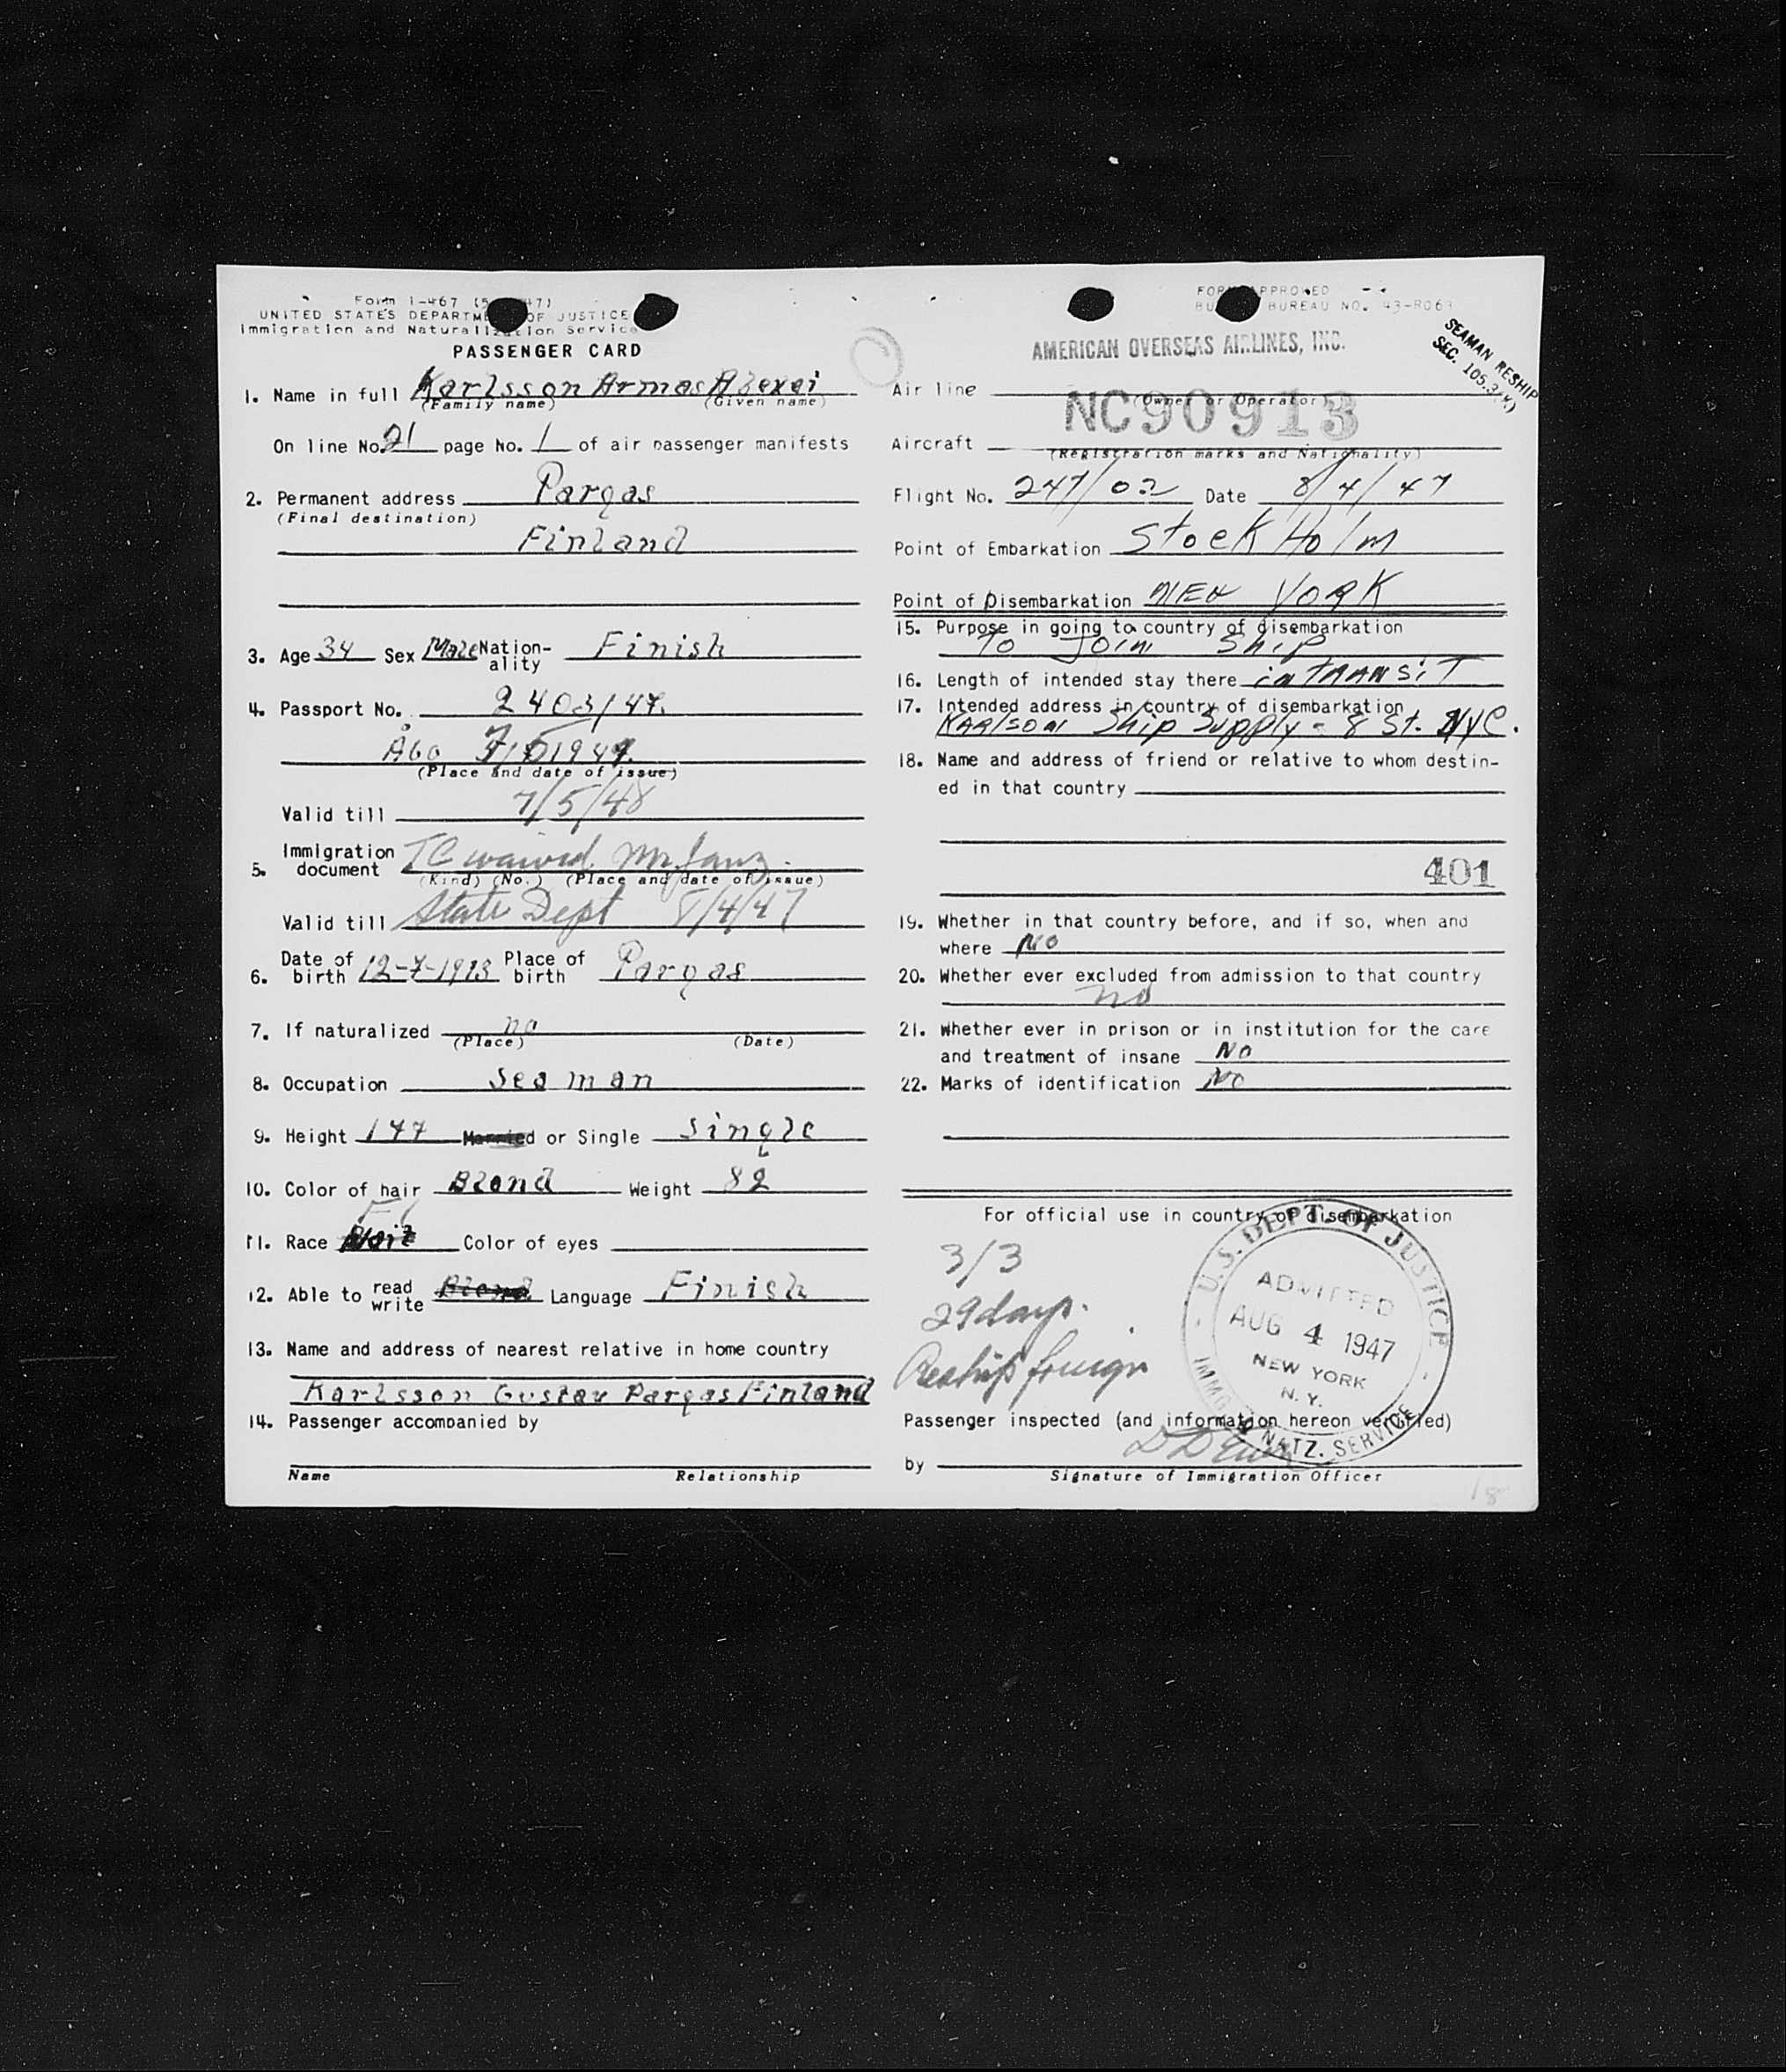 Form I-467 (5 47)
UNITED STATES DEPARTME OF JUSTICE
Immigration and Naturalization Service
PASSENGER CARD
1. Name in full Karlsson Armas Alexei
(Family name) (Given name)
On line No. 21 page No. 1 of air passenger manifests
2. Permanent address Pargas
(Final destination)
Finland
3. Age 34 Sex Male Nation-ality Finish
4. Passport No. 2403/47.
Åbo 7/5 1947.
(Place and date of issue)
Valid till 7/5/48
5. Immigration document TC waived. Mr.
(Kind) (No.) (Place and date of issue)
Valid till State Dept 8/4/47
6. Date of birth 12-7-1913 Place of birth Pargas
7. If naturalized no
(Place) (Date)
8. Occupation Seaman
9. Height 177 Married or Single Single
10. Color of hair Blond Weight 82
11. Race Color of eyes
12. Able to read write Blond Language Finish
13. Name and address of nearest relative in home country
Karlsson Gustav Pargas Finland
14. Passenger accompanied by
Name Relationship
FORM APPROVED
BU BUREAU NO. 43-R063
SEAMAN RESHIP
SEC. 105.3(K)
AMERICAN OVERSEAS AIRLINES, INC.
Air line
(Owner or Operator)
NC90913
Aircraft
(Registration marks and Nationality)
Flight No. 247/02 Date 8/4/47
Point of Embarkation StockHolm
Point of Disembarkation NEW YORK
15. Purpose in going to country of disembarkation
To Join Ship
16. Length of intended stay there in TRANSiT
17. Intended address in country of disembarkation
KARlSON Ship Supply - 8 St. NYC.
18. Name and address of friend or relative to whom destin-
ed in that country
401
19. Whether in that country before, and if so, when and
where No
20. Whether ever excluded from admission to that country
no
21. Whether ever in prison or in institution for the care
and treatment of insane No
22. Marks of identification No
For official use in country of disembarkation
3/3
29 days.
Reship foreign
U.S. DEPT. OF JUSTICE
ADMITTED
AUG 4 1947
NEW YORK
N. Y.
IMMG. & NATZ. SERVICE
Passenger inspected (and information hereon verified)
by
Signature of Immigration Officer
18